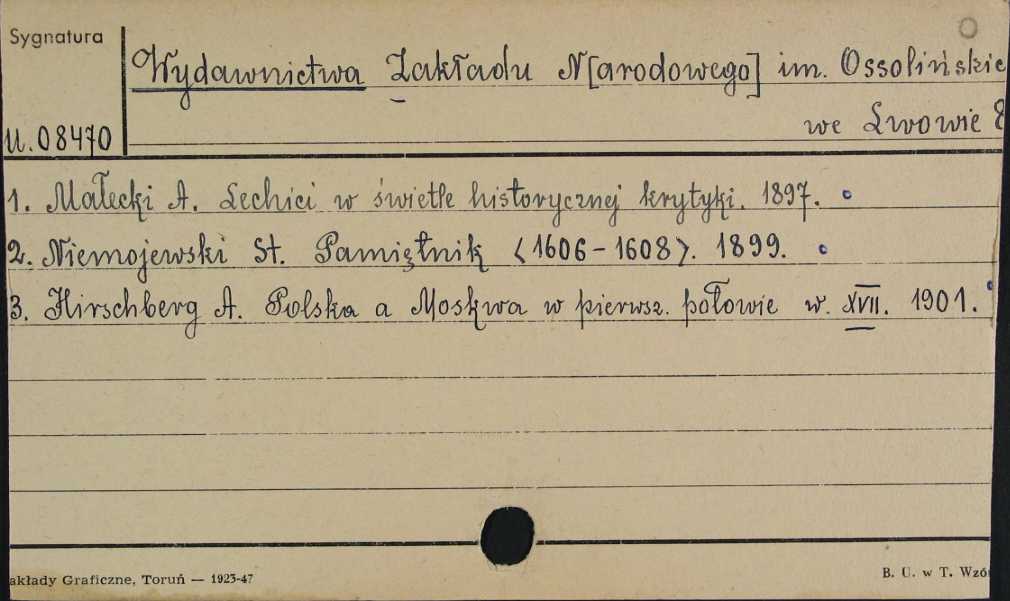 Sygnatura
Wydawnictwa Zakładu N[arodowego] im. Ossolińskie
we Lwowie 8
U.08470
1. Małecki A. Lechici w świetle historycznej krytyki. 1897.
2. Niemojewski St. Pamiętnik <1606-1608>. 1899.
3. Hirschberg A. Polska a Moskwa w pierwsz. połowie w. XVII. 1901.
akłady Graficzne, Toruń — 1923-47
B. U. w T. Wzó